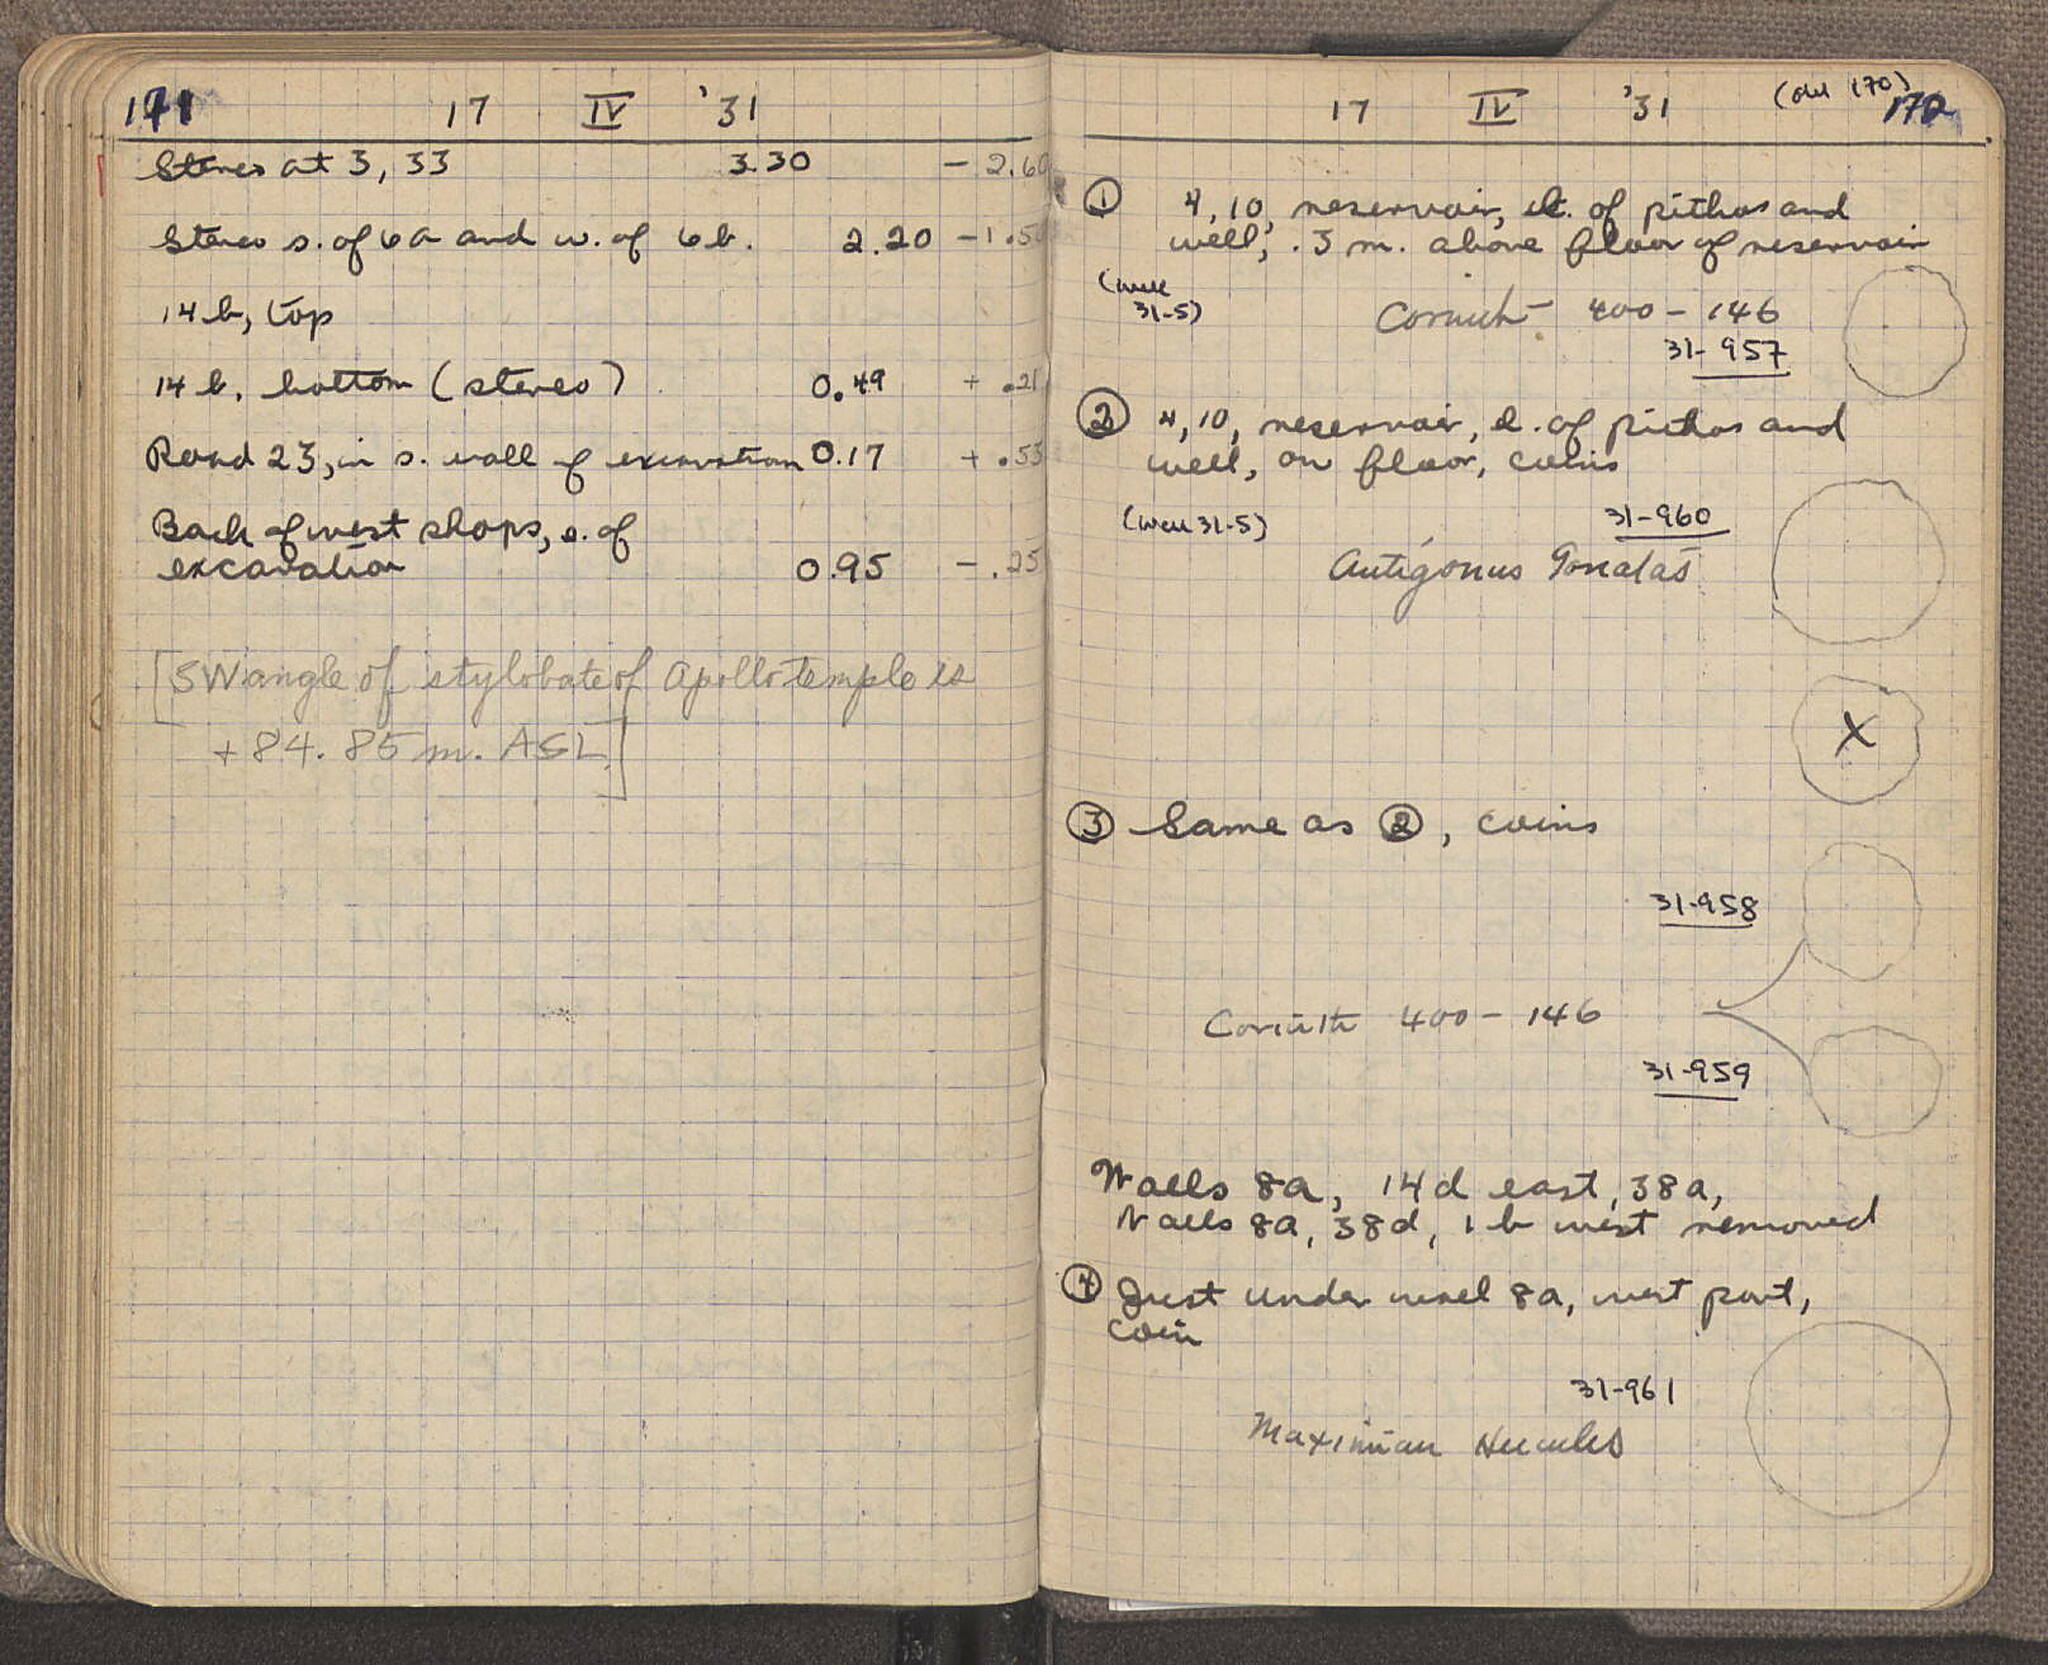 171 17 IV '31
Stereo at 3, 33 3.30 - 2.60
Stereo s. of 6a and w. of 6b. 2.20 - 1.50
14b, top
14 b. bottom (stereo) 0.49 + .21
Road 23, in s. wall of excavation 0.17 + .53
Back of west shops, s. of
excavation 0.95 - .25
[SW angle of stylobate of Apollo temple is
+ 84.85 m. ASL]
17 IV '31 (old 170) 172
① 4, 10, reservoir, e. of pithos and
well, .3 m. above floor of reservoir
(well
31-5)
Corinth 400 - 146
31-957
② 4, 10, reservoir, e. of pithos and
well, on floor, coins
(well 31-5) 31-960
Antigonus Gonatas
X
③ Same as ②, coins
31-958
Corinth 400 - 146
31-959
Walls 8a, 14d east, 38a,
Walls 8a, 38d, 1b west removed
④ Just under wall 8a, west part,
coin
31-961
Maximian Hercules